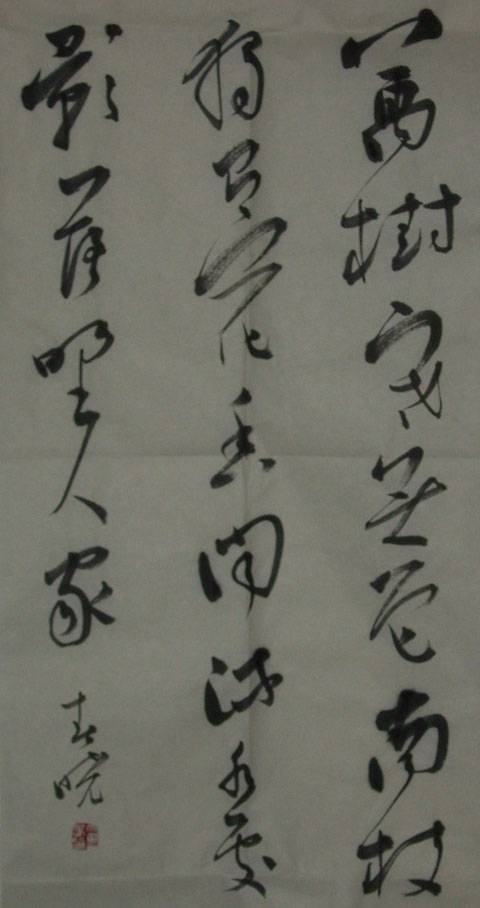 萬樹寒無色南枝
獨有花香聞流水處
影落野人家
春曉